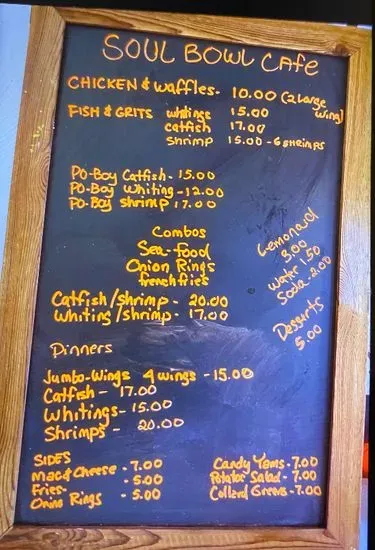 SOUL BOWL CAfe
CHICKEN & Waffles- 10.00 (2 Large wing)
FISH & GRITS whitings 15.00
catfish 17.00
shrimp 15.00 - 6 SHRIMPS
Po-Boy Catfish - 15.00
Po-Boy Whiting - 12.00
Po-Boy Shrimp 17.00
Combos
Sea-food
Onion Rings
french fries
Catfish/shrimp - 20.00
Whiting/shrimp - 17.00
Lemonaid
3.00
Water 1.50
Soda - 2.00
Desserts
5.00
Dinners
Jumbo-Wings 4 wings - 15.00
Catfish - 17.00
Whitings - 15.00
Shrimps - 20.00
SIDES
Mac & Cheese - 7.00
Fries- - 5.00
Onion Rings - 5.00
Candy Yams - 7.00
Potatoe Salad - 7.00
Collard Greens - 7.00